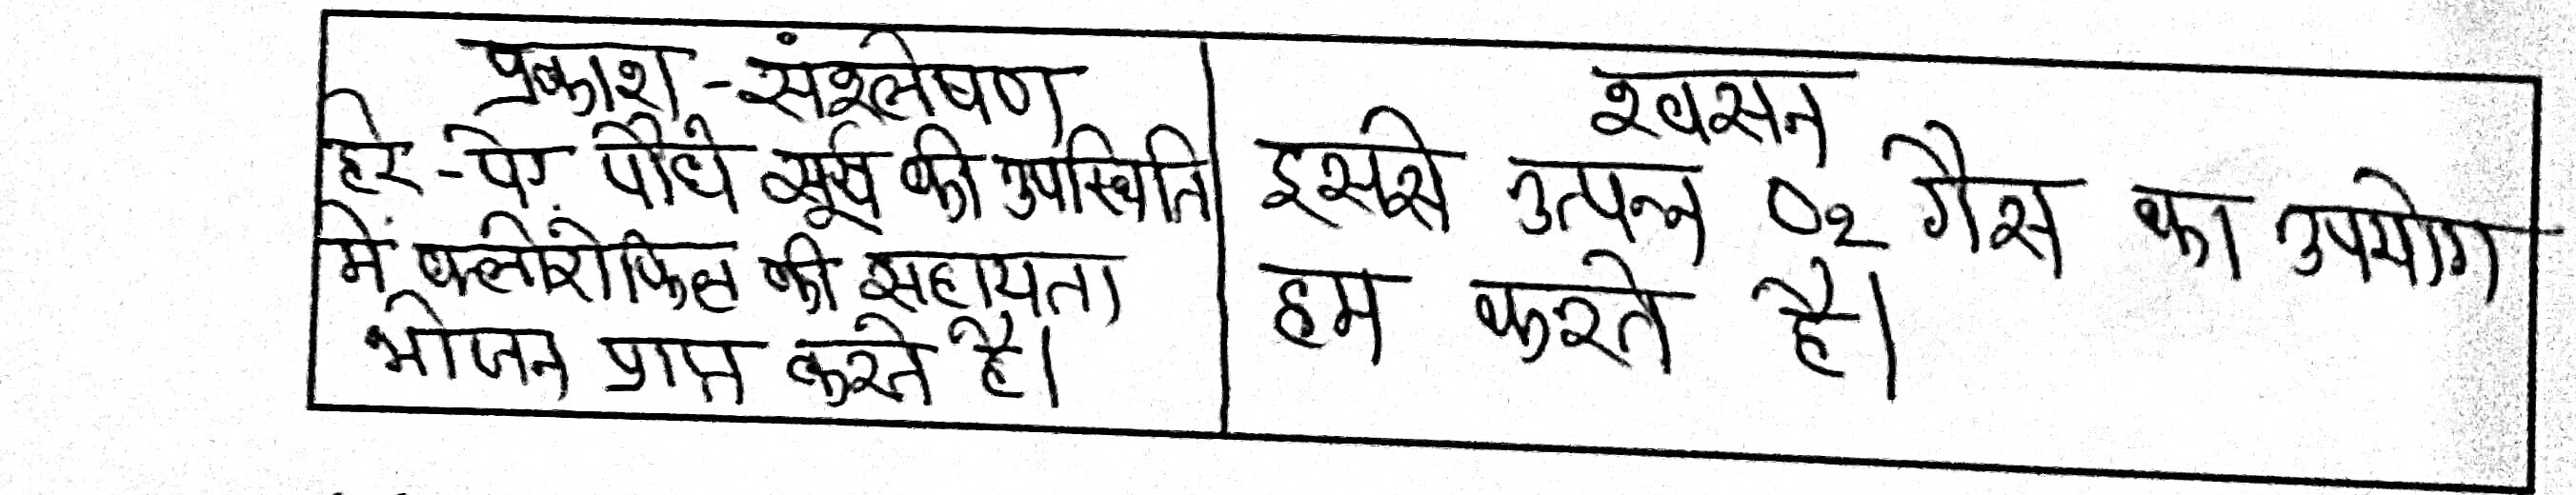 प्रकाश-संश्लेषण
हरे-पेड़ पौधे सूर्य की उपस्थिति
में क्लोरोफिल की सहायता
भोजन प्राप्त करते है।
श्वसन
इससे उत्पन्न O₂ गैस का उपयोग
हम करते है।